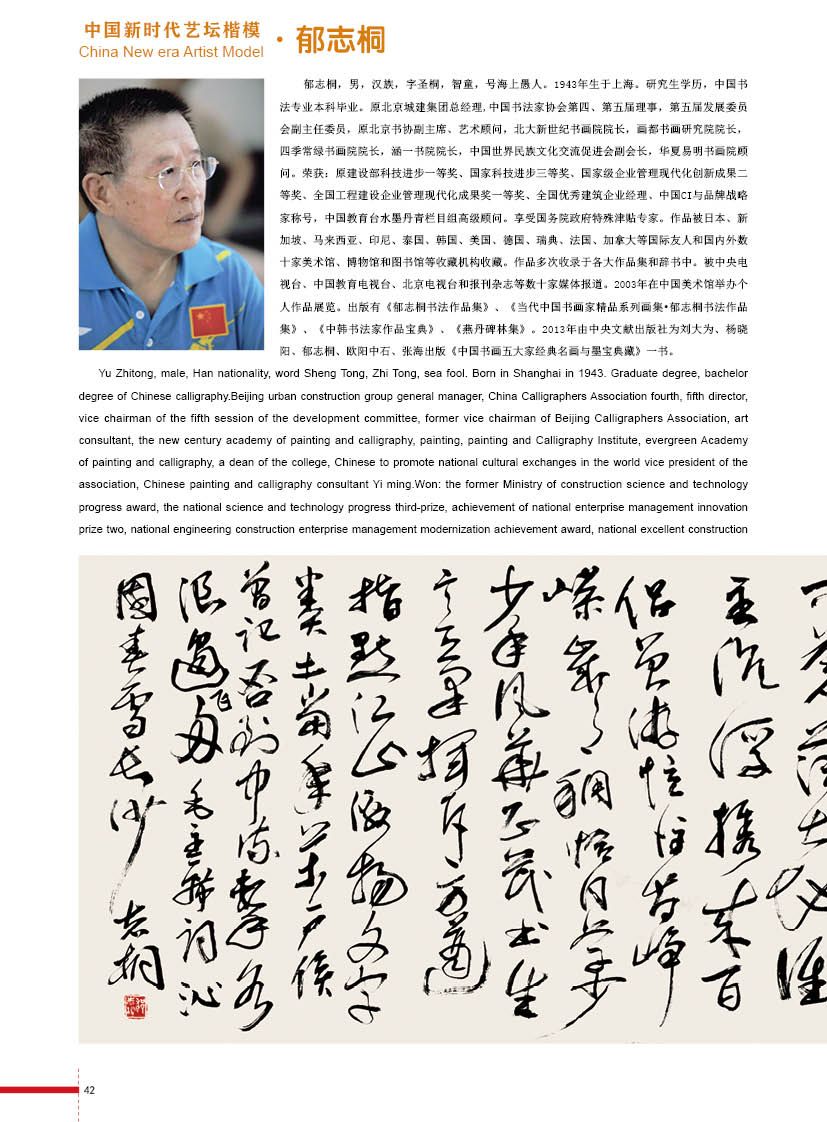 中国新时代艺坛楷模
China New era Artist Model
· 郁志桐
郁志桐，男，汉族，字圣桐，智童，号海上愚人。1943年生于上海。研究生学历，中国书
法专业本科毕业。原北京城建集团总经理,中国书法家协会第四、第五届理事，第五届发展委员
会副主任委员，原北京书协副主席、艺术顾问，北大新世纪书画院院长，画都书画研究院院长，
四季常绿书画院院长，涵一书院院长，中国世界民族文化交流促进会副会长，华夏易明书画院顾
问。荣获：原建设部科技进步一等奖、国家科技进步三等奖、国家级企业管理现代化创新成果二
等奖、全国工程建设企业管理现代化成果奖一等奖、全国优秀建筑企业经理、中国CI与品牌战略
家称号，中国教育台水墨丹青栏目组高级顾问。享受国务院政府特殊津贴专家。作品被日本、新
加坡、马来西亚、印尼、泰国、韩国、美国、德国、瑞典、法国、加拿大等国际友人和国内外数
十家美术馆、博物馆和图书馆等收藏机构收藏。作品多次收录于各大作品集和辞书中。被中央电
视台、中国教育电视台、北京电视台和报刊杂志等数十家媒体报道。2003年在中国美术馆举办个
人作品展览。出版有《郁志桐书法作品集》、《当代中国书画家精品系列画集•郁志桐书法作品
集》、《中韩书法家作品宝典》、《燕丹碑林集》。2013年由中央文献出版社为刘大为、杨晓
阳、郁志桐、欧阳中石、张海出版《中国书画五大家经典名画与墨宝典藏》一书。
Yu Zhitong, male, Han nationality, word Sheng Tong, Zhi Tong, sea fool. Born in Shanghai in 1943. Graduate degree, bachelor
degree of Chinese calligraphy.Beijing urban construction group general manager, China Calligraphers Association fourth, fifth director,
vice chairman of the fifth session of the development committee, former vice chairman of Beijing Calligraphers Association, art
consultant, the new century academy of painting and calligraphy, painting, painting and Calligraphy Institute, evergreen Academy
of painting and calligraphy, a dean of the college, Chinese to promote national cultural exchanges in the world vice president of the
association, Chinese painting and calligraphy consultant Yi ming.Won: the former Ministry of construction science and technology
progress award, the national science and technology progress third-prize, achievement of national enterprise management innovation
prize two, national engineering construction enterprise management modernization achievement award, national excellent construction
主沉浮携来百
侣曾游忆往昔峥
嵘岁月稠恰同学
少年风华正茂书生
意气挥斥方遒
指点江山激扬文字
粪土当年万户侯
曾记否到中流击水
浪遏飞舟 毛主席词沁
园春雪长沙 志桐
42